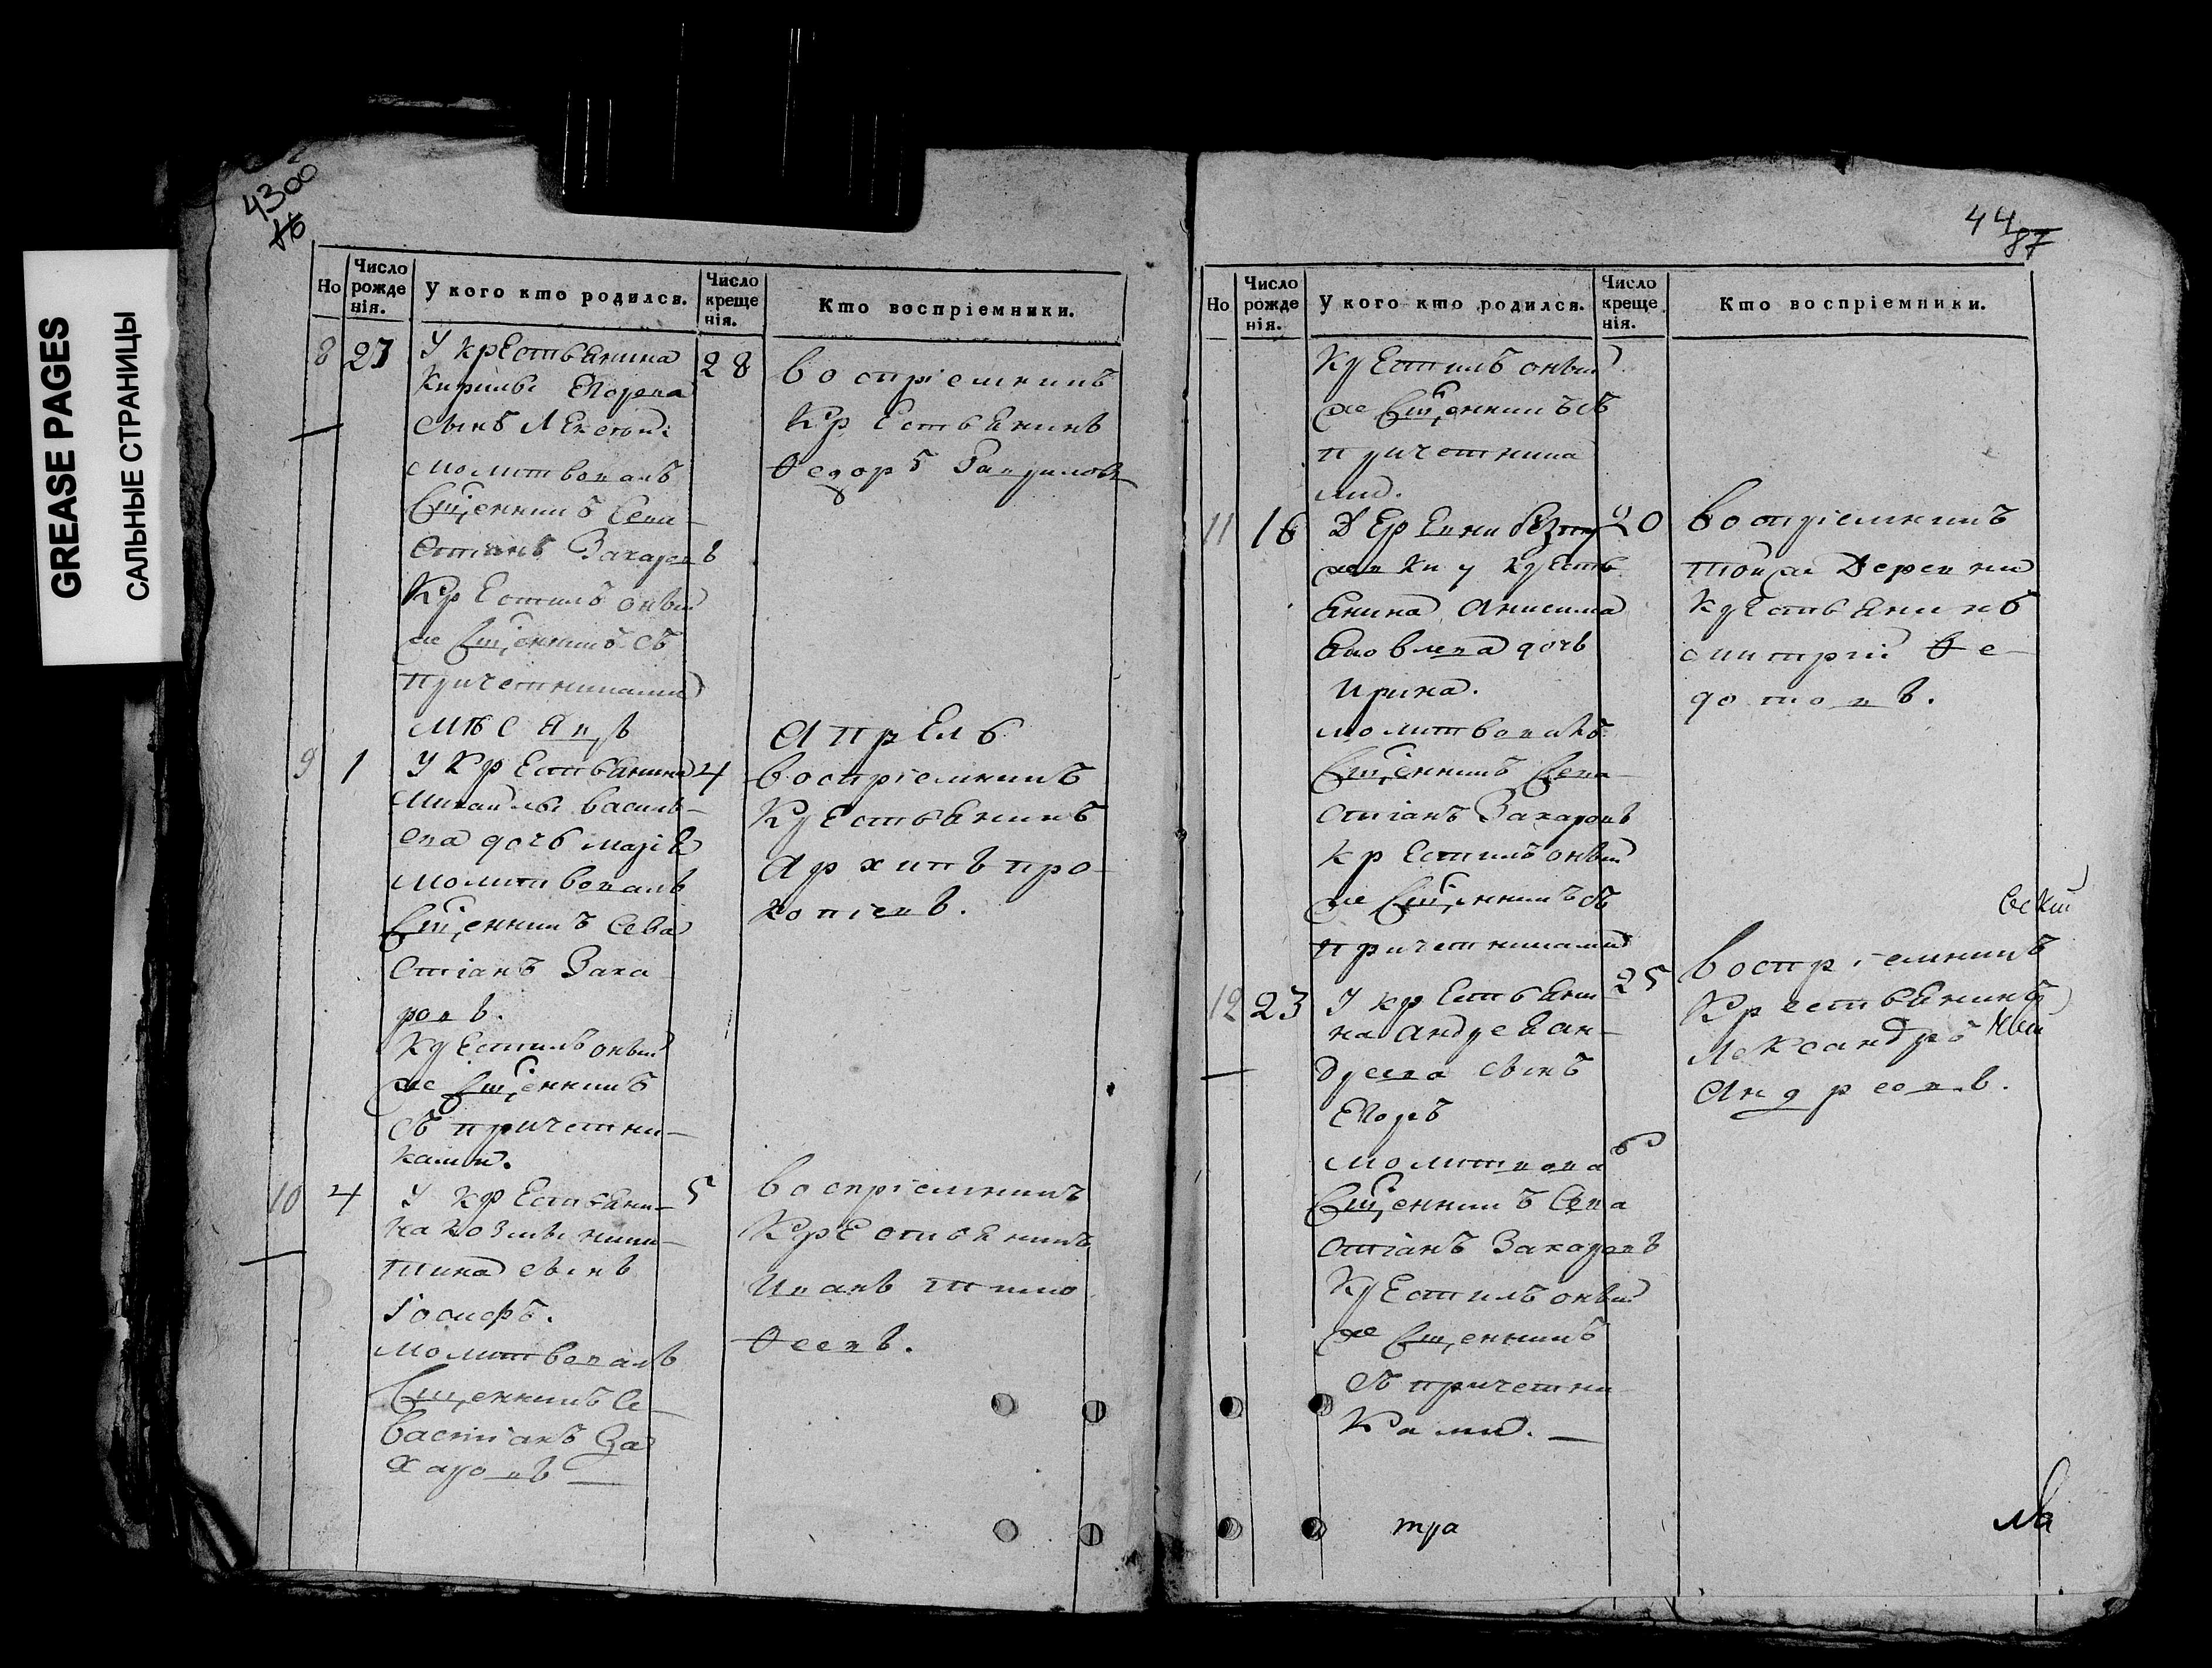 GREASE PAGES
САЛЬНЫЕ СТРАНИЦЫ
4300
86
Но
Число рожденія.
У кого кто родился.
Число крещенія.
Кто воспріемники.
8 23 У крестьянина 28
Кирилы Егорова
сынъ Алексѣй
молитвовалъ
Сщ҃енникъ Сева
стіянъ Захаровъ
Крестилъ оный
же Сщ҃енникъ съ
причетниками
воспріемникъ
Крестьянинъ
Ѳедоръ
мѣсяцъ Апрель
9 1 У Крестьянина 4
Михайлы василь
ева дочь марія
молитвовалъ
Сщ҃енникъ Сева
стіанъ Заха
ровъ.
Крестилъ оный
же Сщ҃енникъ
съ причетни
ками.
воспріемникъ
Крестьянинъ
Архипъ про
копіевъ.
10 4 У Крестьяни 5
на козмы ники
тина сынъ
Іосифъ.
молитвовалъ
Сщ҃енникъ Се
вастіанъ За
харовъ
воспріемникъ
Крестьянинъ
Иванъ тимо
Ѳеевъ.
44
87
Но
Число рожденія.
У кого кто родился.
Число крещенія.
Кто воспріемники.
Крестилъ оный
же Сщ҃енникъ съ
причетника
ми.
11 16 Деревни 20
у крестъ
янина Анисима
Яковлева дочь
Ирина.
молитвовалъ
Сщ҃енникъ Сева
стіанъ Захаровъ
крестилъ оный
же Сщ҃енникъ съ
причетниками
воспріемникъ
той же Деревни
крестьянинъ
митрій Ѳе
дотовъ.
12 23 У крестьяни 25
на андрея ан
дреева сынъ
Егоръ
молитвова
Сщ҃енникъ Сева
стіанъ Захаровъ
Крестилъ оный
же Сщ҃енникъ
съ причетни
ками.
воспріемникъ
Крестьянинъ
Александръ
Андреевъ.
тра